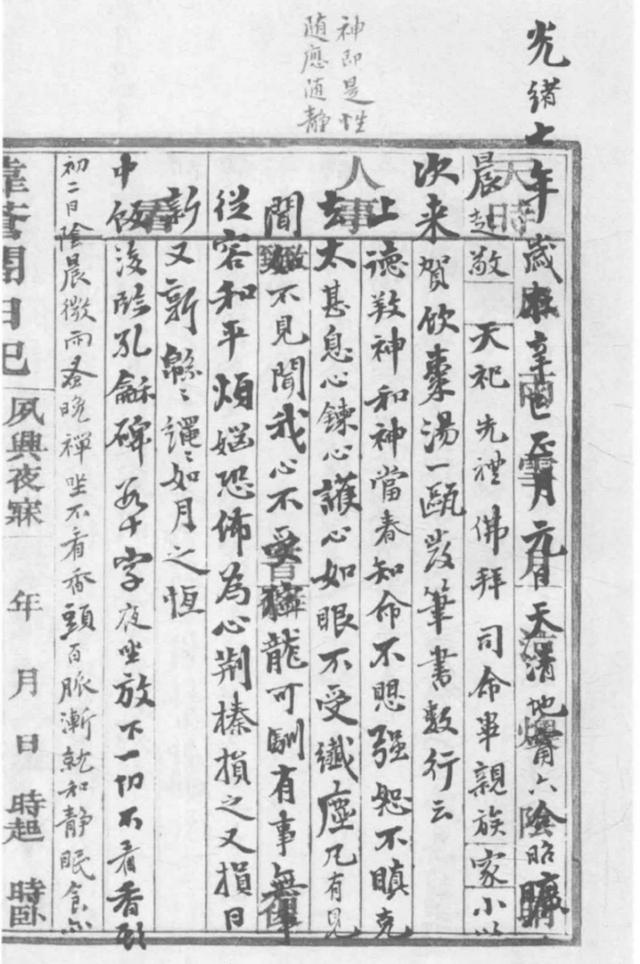 神即是性
随應随静
光緒七年歲在辛巳正月元日天清地甯六陰昭曠
晨起敬天祀先禮佛拜司命畢親族家小以
次来賀飲棗湯一甌发筆書數行云
上德敎神和神當春知命不思强恕不瞋克
去太甚息心鍊心護心如眼不受纖塵凡有見
聞如不見聞我心不受獰龍可馴有事無事
從容和平煩惱恐怖為心荆榛損之又損日
新又新緜緜繩繩如月之恒
中飯後臨孔龢碑若干字夜坐放下一切不看香頭
初二日陰晨微雨蚤晚禪坐不看香頭百脈漸就和静眠食
日記
夙興夜寐
年 月 日 時起 時卧
天時
人事